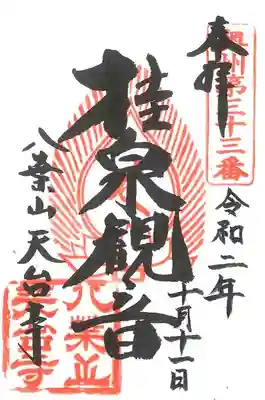 奉拝
奥州第三十三番
令和二年
十月十一日
桂泉観音
八葉山天台寺
八葉山
天台寺